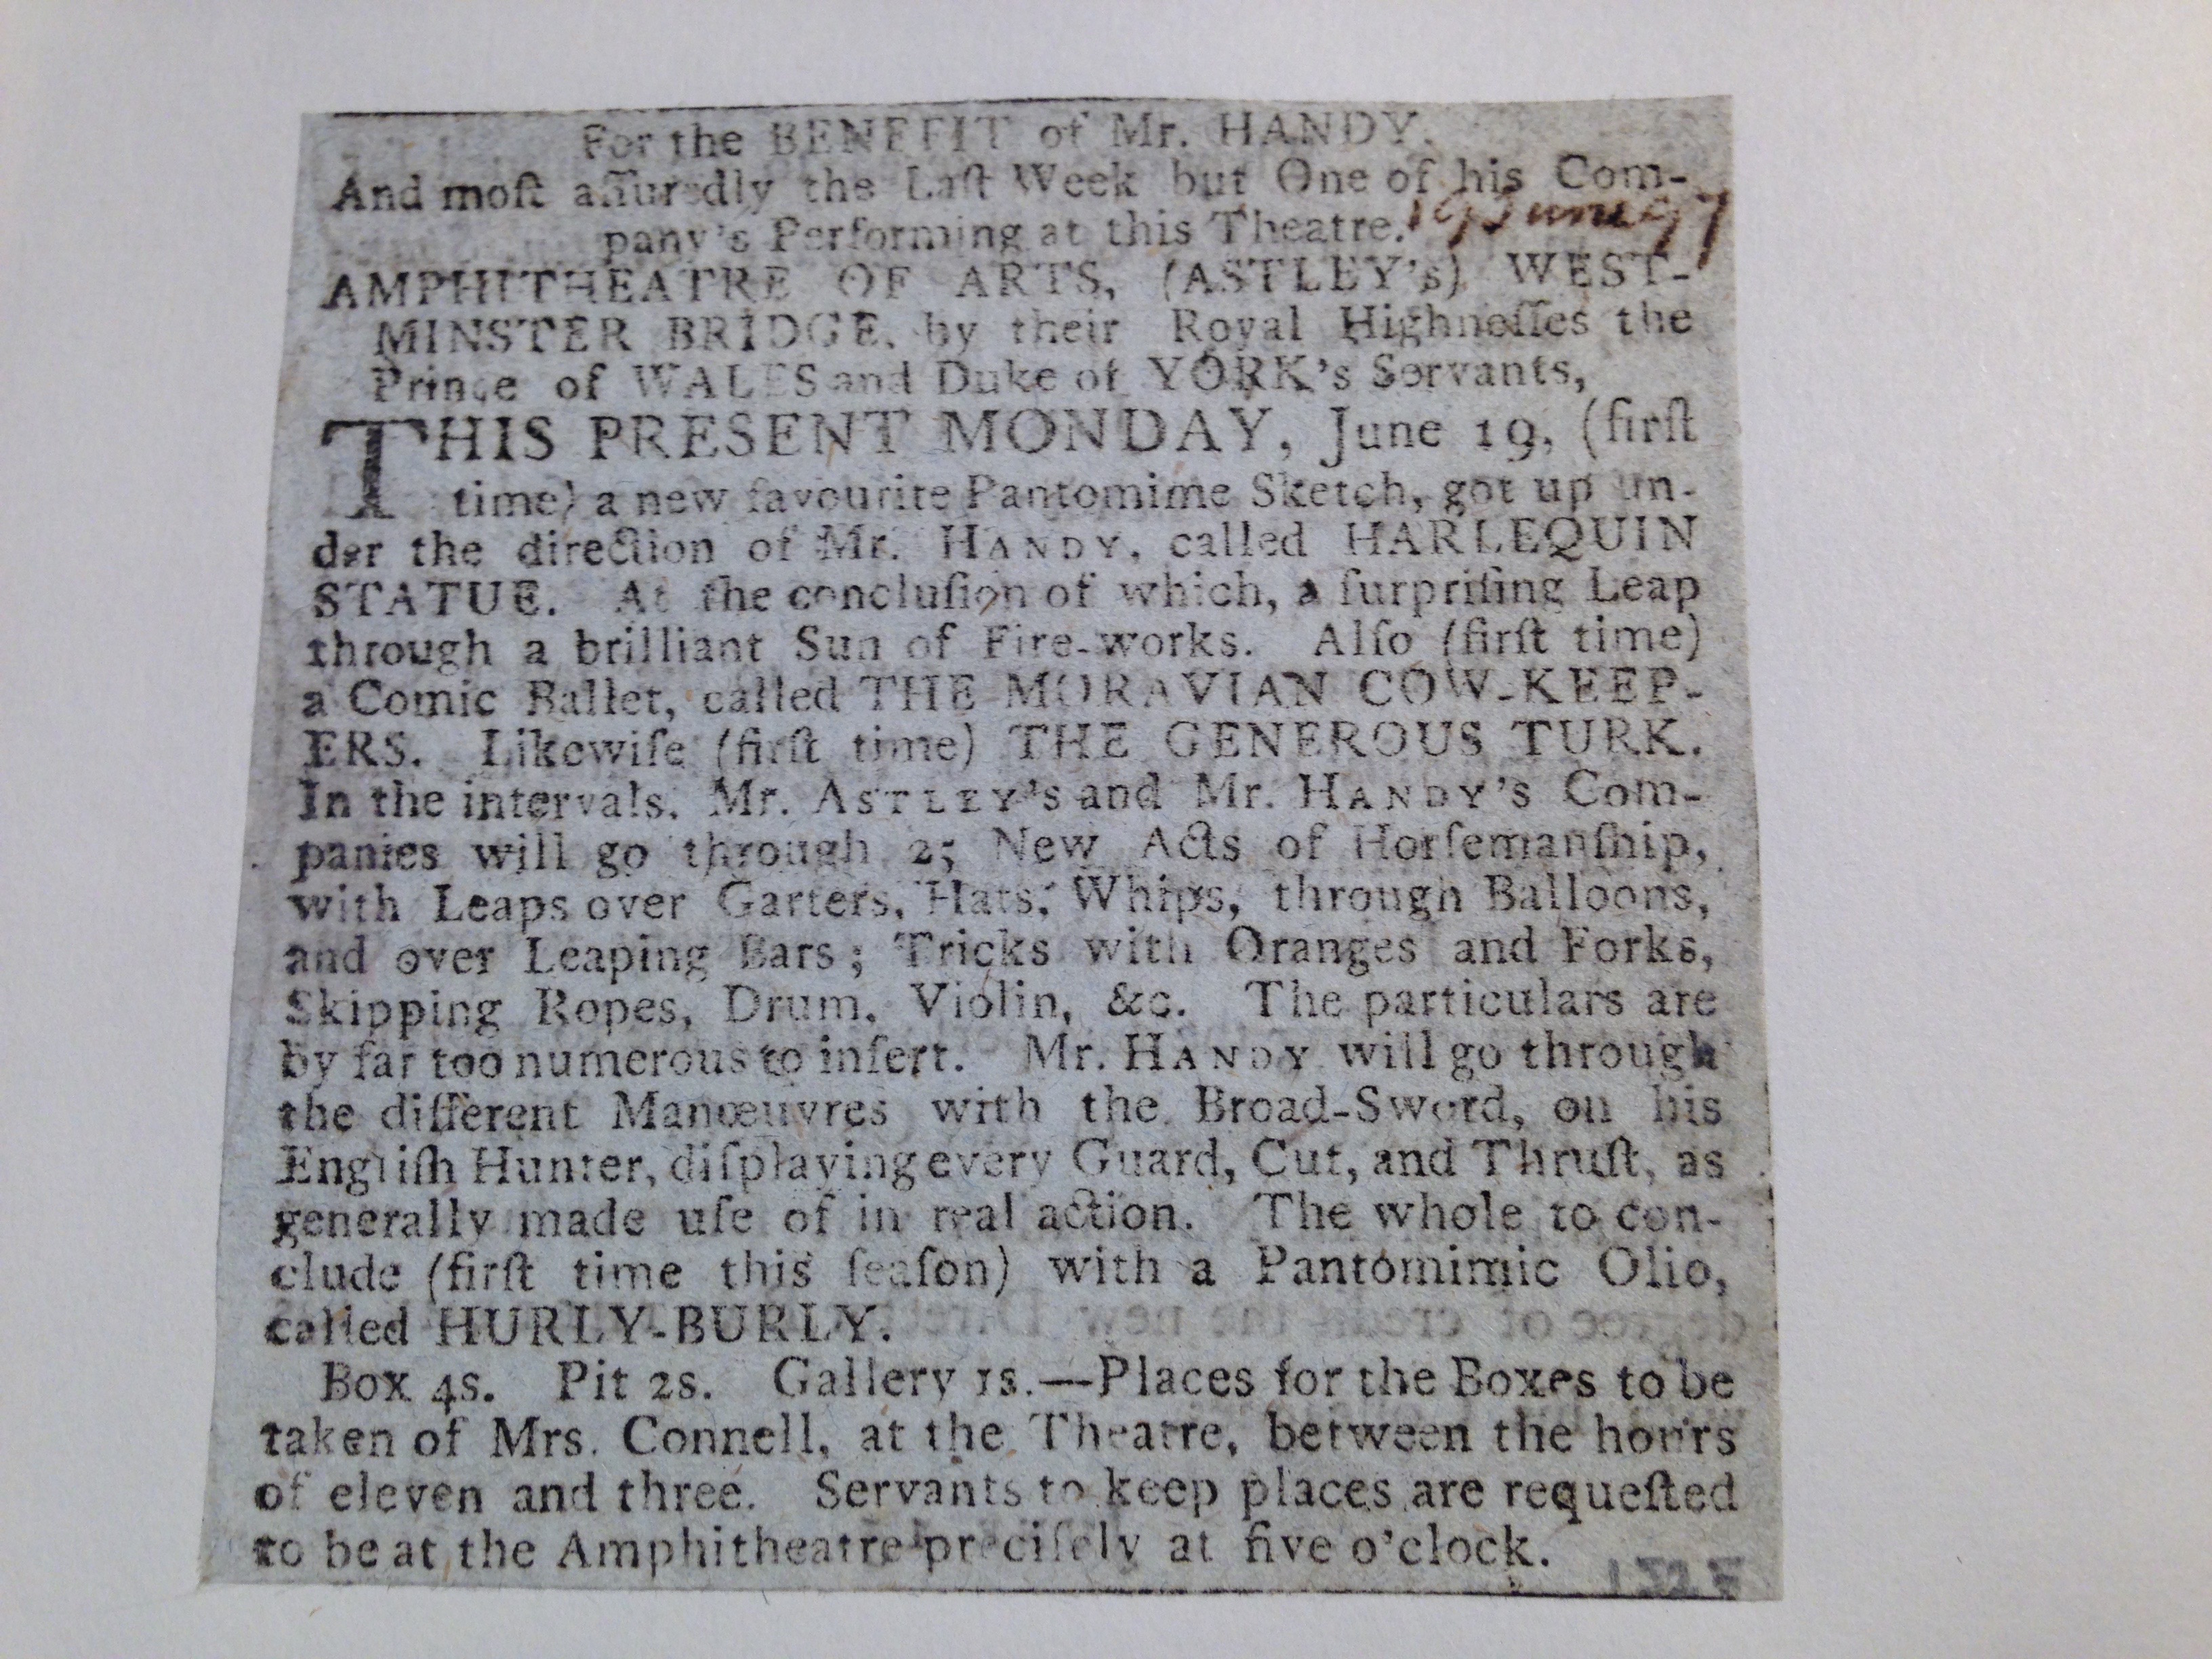 For the BENEFIT of Mr. HANDY.
And moſt aſſuredly the Laſt Week but One of his Com-
pany's Performing at this Theatre. 19 June 97
AMPHITHEATRE OF ARTS, (ASTLEY's) WEST-
MINSTER BRIDGE, by their Royal Highneſſes the
Prince of WALES and Duke of YORK's Servants,
THIS PRESENT MONDAY, June 19, (firſt
time) a new favourite Pantomime Sketch, got up un-
der the direction of Mr. HANDY, called HARLEQUIN
STATUE. At the concluſion of which, a ſurpriſing Leap
through a brilliant Sun of Fire-works. Alſo (firſt time)
a Comic Ballet, called THE MORAVIAN COW-KEEP-
ERS. Likewiſe (firſt time) THE GENEROUS TURK.
In the intervals, Mr. ASTLEY's and Mr. HANDY's Com-
panies will go through 25 New Acts of Horſemanſhip,
with Leaps over Garters, Hats, Whips, through Balloons,
and over Leaping Bars; Tricks with Oranges and Forks,
Skipping Ropes, Drum, Violin, &c. The particulars are
by far too numerous to inſert. Mr. HANDY will go through
the different Manœuvres with the Broad-Sword, on his
Engliſh Hunter, diſplaying every Guard, Cut, and Thruſt, as
generally made uſe of in real action. The whole to con-
clude (firſt time this ſeaſon) with a Pantomimic Olio,
called HURLY-BURLY.
Box 4s. Pit 2s. Gallery 1s.—Places for the Boxes to be
taken of Mrs. Connell, at the Theatre, between the hours
of eleven and three. Servants to keep places are requeſted
to be at the Amphitheatre preciſely at five o'clock.